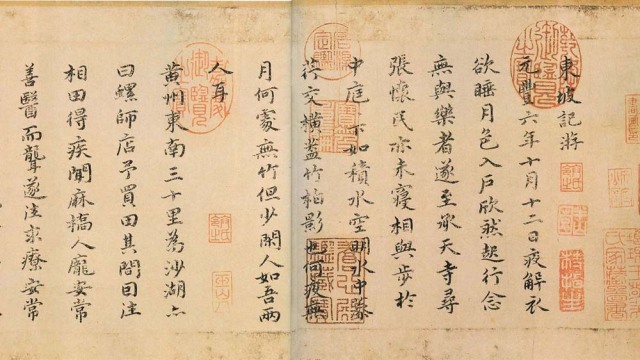 東坡記游
元豐六年十月十二日夜解衣
欲睡月色入戶欣然起行念
無與樂者遂至承天寺尋
張懷民亦未寢相與步於
中庭下如積水空明水中藻
荇交橫蓋竹柏影也何夜無
月何處無竹但少閑人如吾兩
人耳
黃州東南三十里為沙湖亦
曰螺師店予買田其間因往
相田得疾聞麻橋人龐安常
善醫而聾遂往求療安常